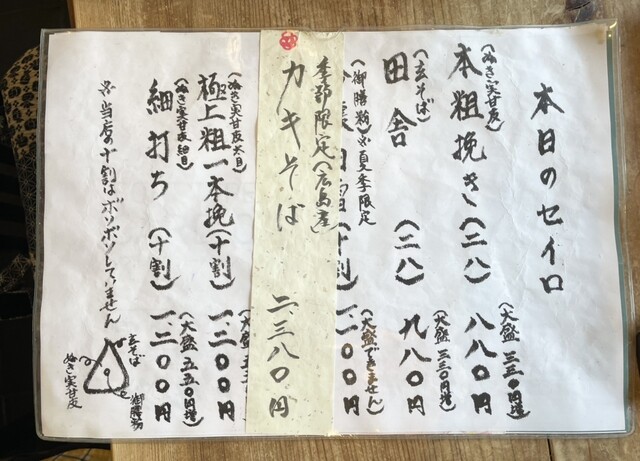 本日のセイロ
(ぬき実甘皮)
本粗挽き(二八) 八八〇円
(大盛 三三〇円増)
(玄そば)
田舎 (二八) 九八〇円
(大盛 三三〇円増)
(御膳粉)※夏季限定
(十割) 一、二〇〇円
(大盛できません)
季節限定(広島産)
カキそば 二、三八〇円
(ぬき実甘皮太目)
極上粗一本挽(十割) 一、二〇〇円
(大盛 五五
(ぬき実甘皮細目)
細打ち (十割) 一、二〇〇円
(大盛 五五〇円増)
※当店の十割はボソボソしていません
玄そば
ぬき実甘皮
御膳粉